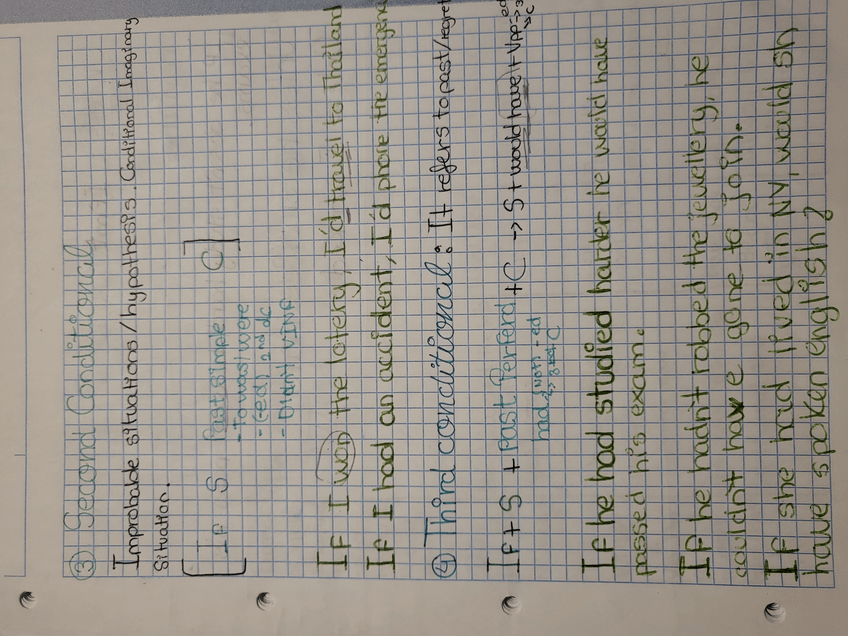 ③ Second Conditional
Improbable situations/hypothesis. Conditional Imaginary
situation.
[If S Past simple C]
- To was/were
- (ed) 2nd C
- Didn't VINF
If I won the lotery, I'd travel to Thailand
If I had an accident, I'd phone the emergenc
④ Third conditional: It refers to past/regret
If + S + Past Perferd + C → S + would have + Vpp
had (not) - ed
3rd C
If he had studied harder he would have
passed his exam.
If he hadn't robbed the jewellery, he
couldn't have gone to join.
If she had lived in NY, would sh
have spoken english?